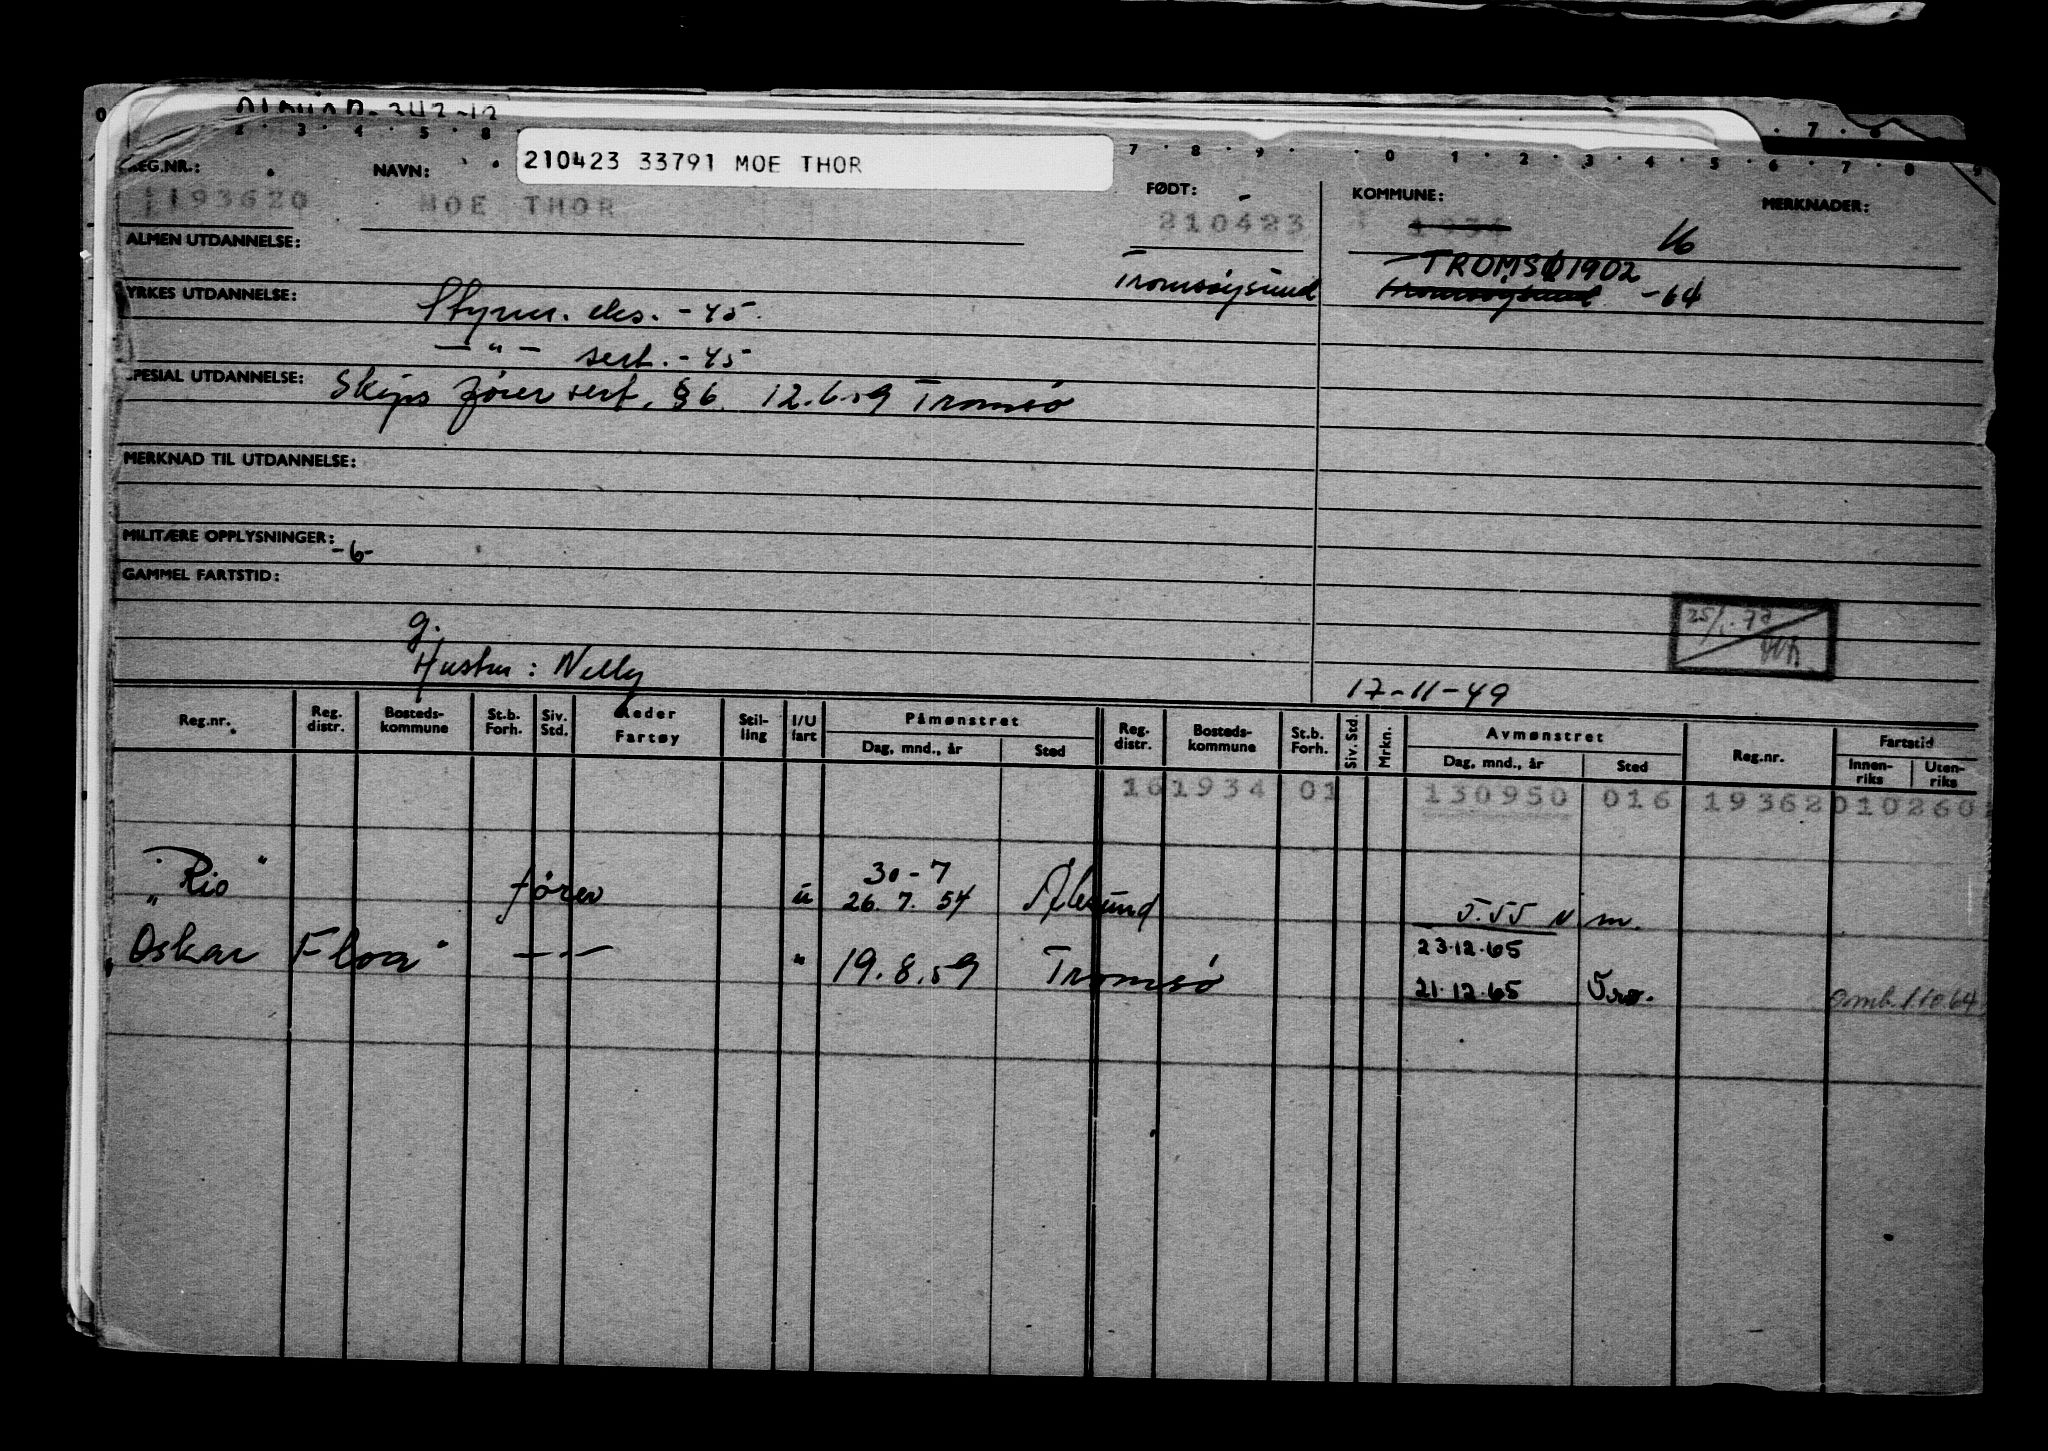 210423 33791 MOE THOR
REG.NR.: NAVN: FØDT: KOMMUNE: MERKNADER:
193620 MOE THOR 210423 1934
16
ALMEN UTDANNELSE:
TROMSØ 1902
Tromsøysund Tromsøysund -64
YRKES UTDANNELSE: Styrm. eks. -45.
— " — sert. -45
SPESIAL UTDANNELSE: Skips fører sert. §6. 12.6.59 Tromsø
MERKNAD TIL UTDANNELSE:
MILITÆRE OPPLYSNINGER: -6-
GAMMEL FARTSTID:
25/1.72
g.
Hustru: Nelly
17-11-49
Reg.nr. Reg. distr. Bosteds-kommune St.b. Forh. Siv. Std. Reder Fartøy Stil-ling I/U fart Påmønstret Dag, mnd., år Sted Reg. distr. Bosteds-kommune St.b. Forh. Siv. Std. Mrkn. Avmønstret Dag, mnd., år Sted Reg.nr. Fartstid Innen-riks Uten-riks
16 1934 01 130950 016 193620 10260
30-7
"Rio" fører u 26.7.54 Ålesund 5.55 N.m.
23.12.65
"Oskar Floa" — " — " 19.8.59 Tromsø
21.12.65 Omb. 1.10.64